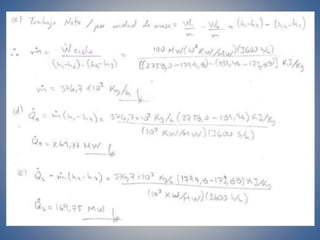 c) Trabajo Neto / por unidad de masa = Ẇt/ṁ - Ẇb/ṁ = (h1-h2) - (h4-h3)
∴ ṁ = Ẇ ciclo / (h1-h2)-(h4-h3) = 100 MW (10³ KW/MW)(3600 s/h) / [(2758,0-1794,8)-(181,94-173,88)] KJ/Kg
ṁ = 376,7 x10³ Kg/h
(d) Q̇e = ṁ (h1-h4) = 376,7x10³ Kg/h (2758,0-181,94) KJ/Kg / (10³ KW/MW)(3600 s/h)
Q̇e = 269,77 MW
(e) Q̇s = ṁ (h2-h3) = 376,7x10³ Kg/h (1794,8-173,88) KJ/Kg / (10³ KW/MW)(3600 s/h)
Q̇s = 169,75 MW